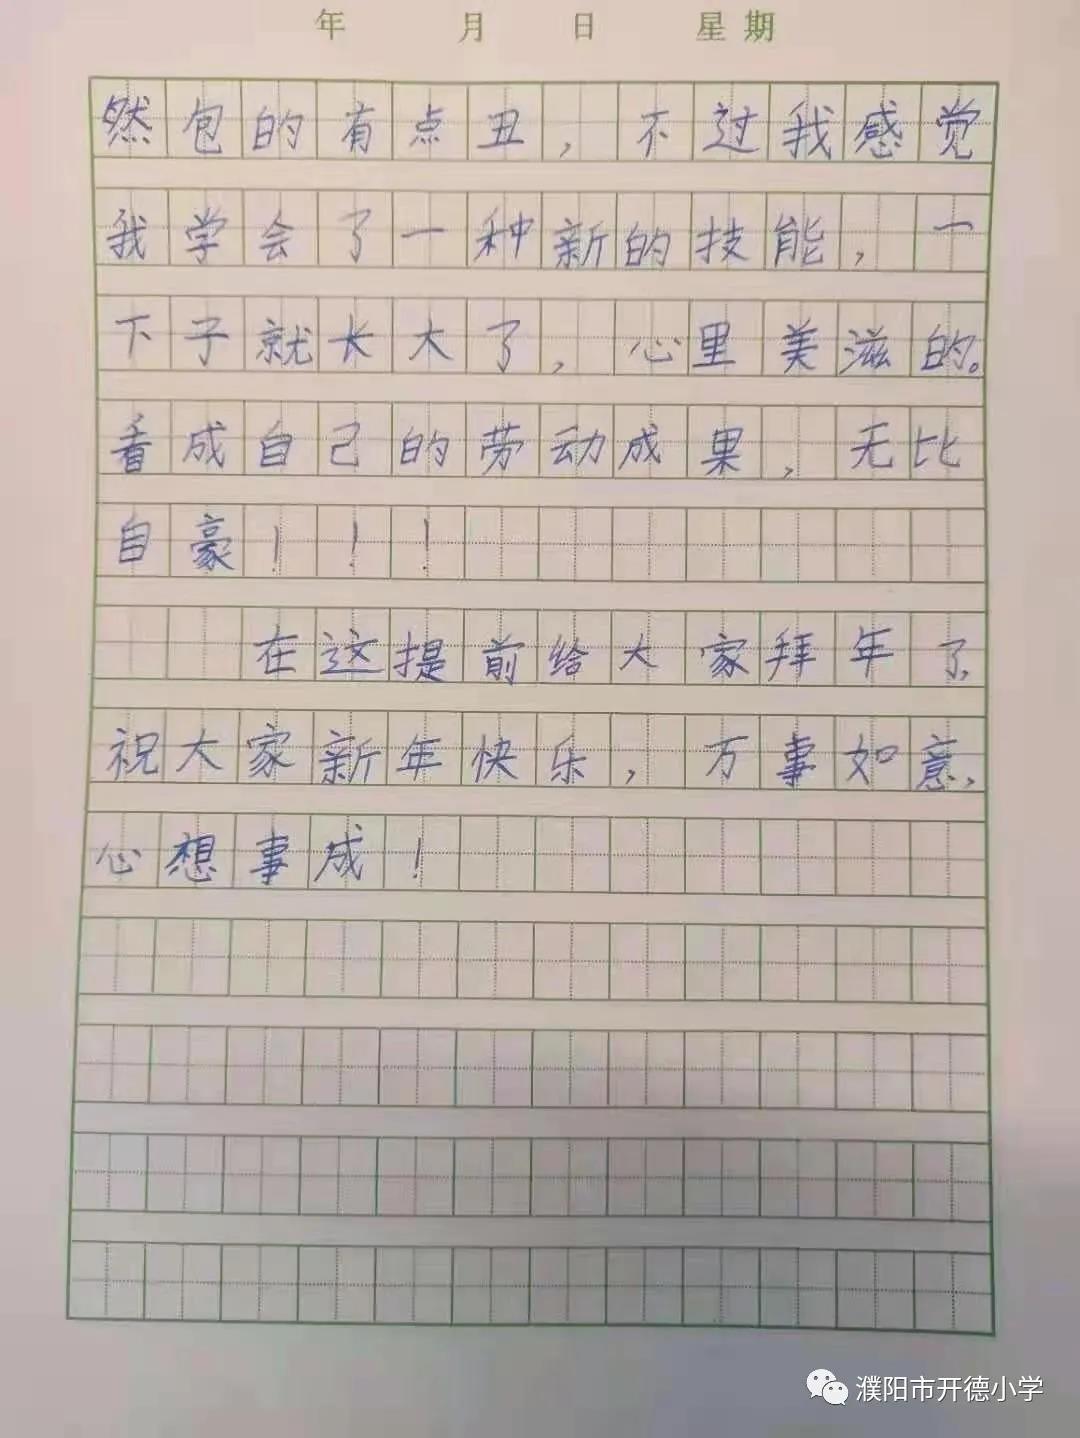 年 月 日 星期
然包的有点丑，不过我感觉
我学会了一种新的技能，一
下子就长大了，心里美滋的。
看成自己的劳动成果，无比
自豪！！！
在这提前给大家拜年了，
祝大家新年快乐，万事如意，
心想事成！
濮阳市开德小学